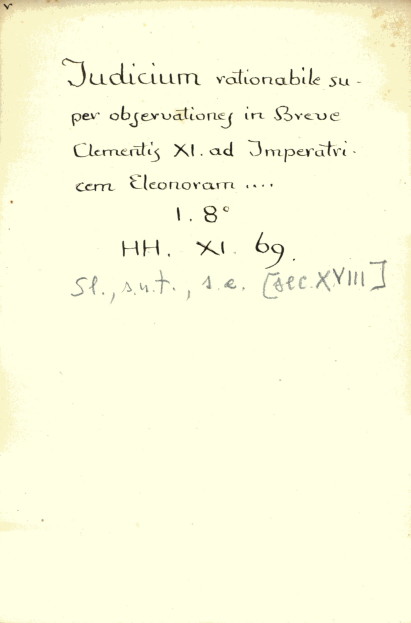 Judicium rationabile su-
per observationes in Breve
Clementis XI. ad Imperatri-
cem Eleonoram ....
1. 8°
HH. XI. 69.
Sl., s.n.t., s.e. [sec. XVIII]